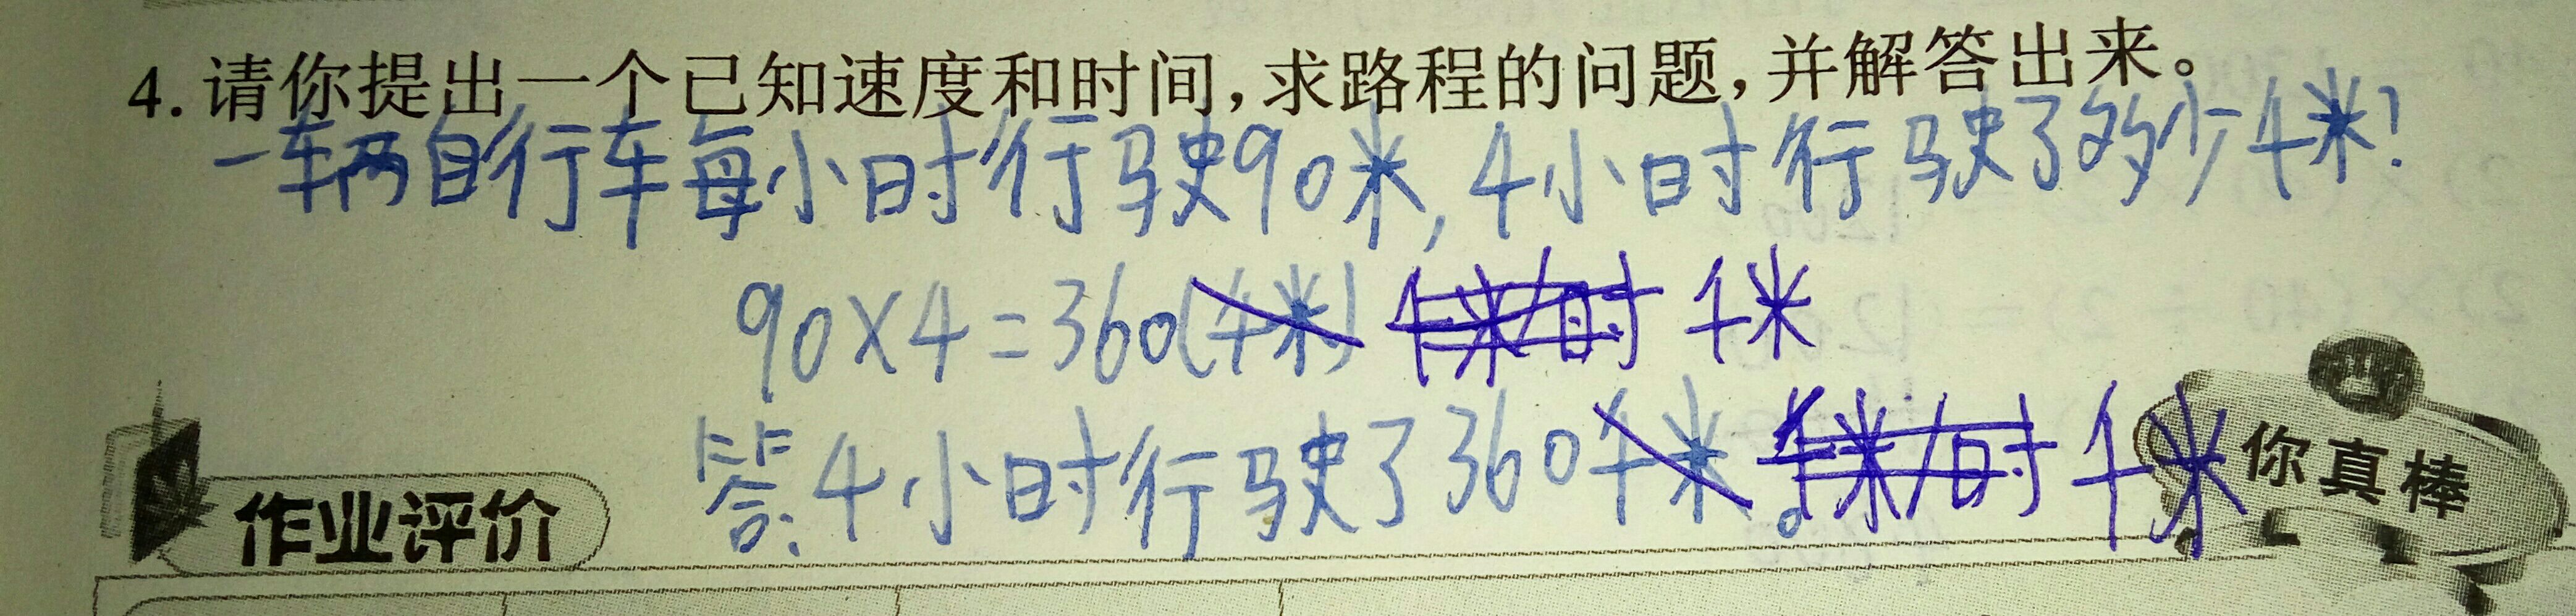 4.请你提出一个已知速度和时间,求路程的问题,并解答出来。
一辆自行车每小时行驶90米,4小时行驶了多少千米?
90×4=360(千米) 千米/时 千米
答:4小时行驶了360千米。千米/时 千米
你真棒
作业评价